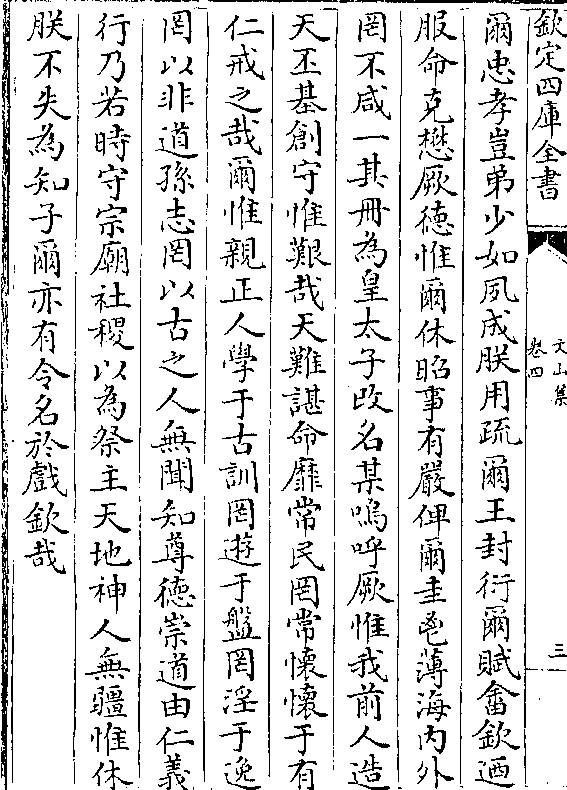 欽定四庫全書
文山集
卷四
三
爾忠孝豈弟少如夙成朕用疏爾王封衍爾賦畬欽迺
服命克懋厥德惟爾休昭事有嚴俾爾圭鬯薄海内外
罔不咸一其冊為皇太子改名某嗚呼厥惟我前人造
天丕基創守惟艱哉天難諶命靡常民罔常懷懷于有
仁戒之哉爾惟親正人學于古訓罔遊于盤罔淫于逸
罔以非道孫志罔以古之人無聞知尊德崇道由仁義
行乃若時守宗廟社稷以為祭主天地神人無疆惟休
朕不失為知子爾亦有令名於戲欽哉